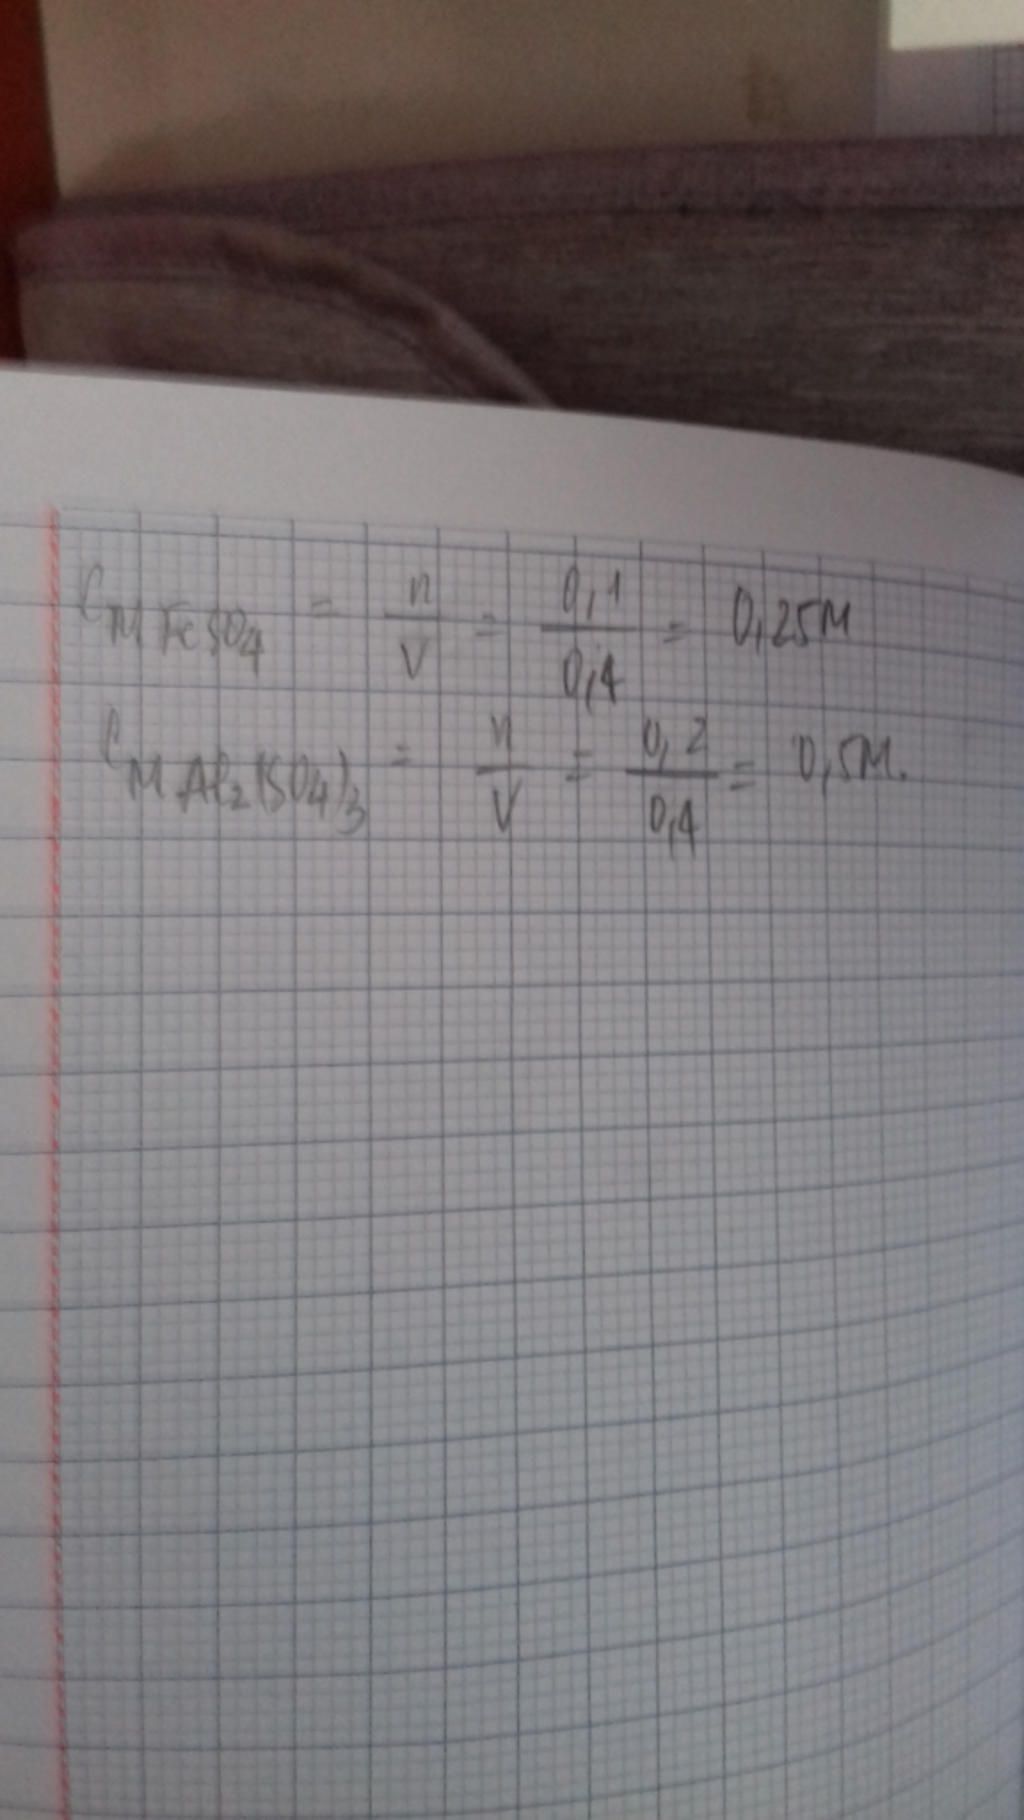 CM FeSO4 = n/V = 0,1/0,4 = 0,25M
CM Al2(SO4)3 = n/V = 0,2/0,4 = 0,5M.